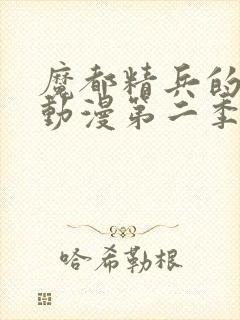 魔都精兵的
動漫第二季
哈希勒根